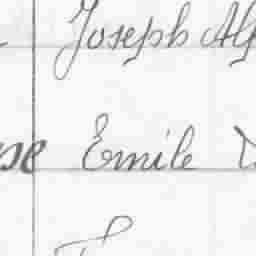 Joseph Alp
se Emile D